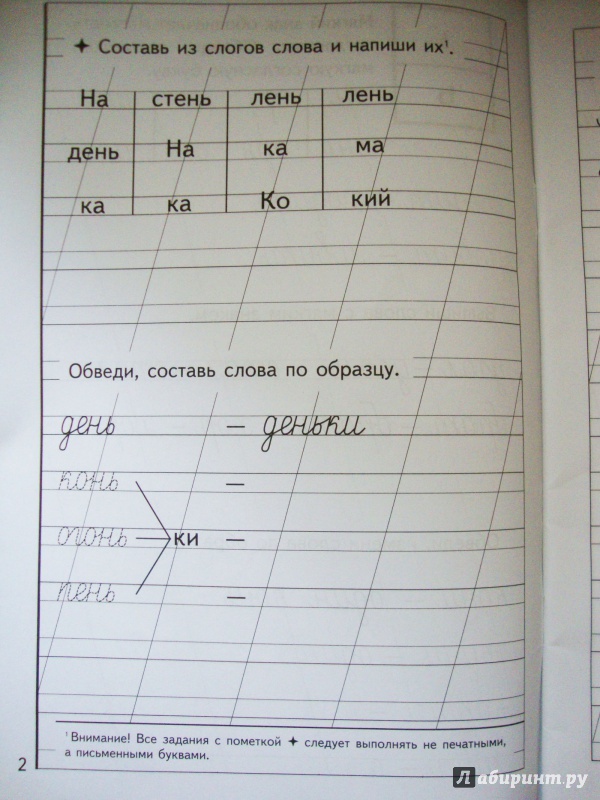 ✦ Составь из слогов слова и напиши их¹.
На стень лень лень
день На ка ма
ка ка Ко кий
Обведи, составь слова по образцу.
день — деньки
конь —
огонь ки —
пень —
¹Внимание! Все задания с пометкой ✦ следует выполнять не печатными,
а письменными буквами.
2
Лабиринт.ру